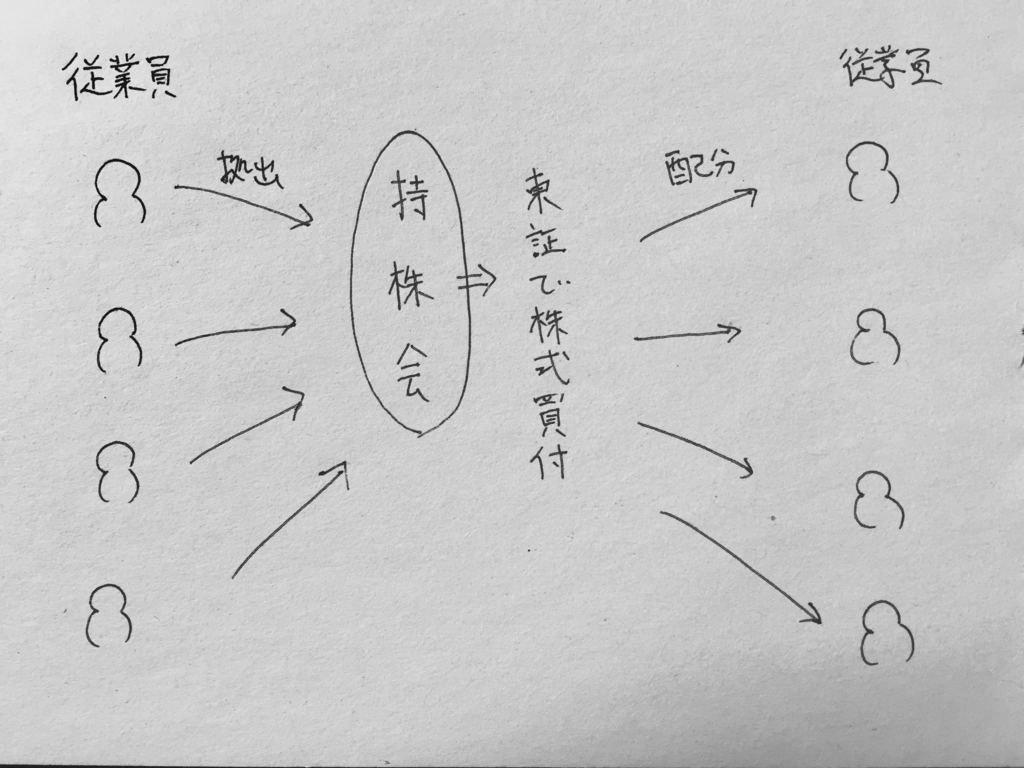 従業員
拠出
持株会
東証で株式買付
配分
従業員